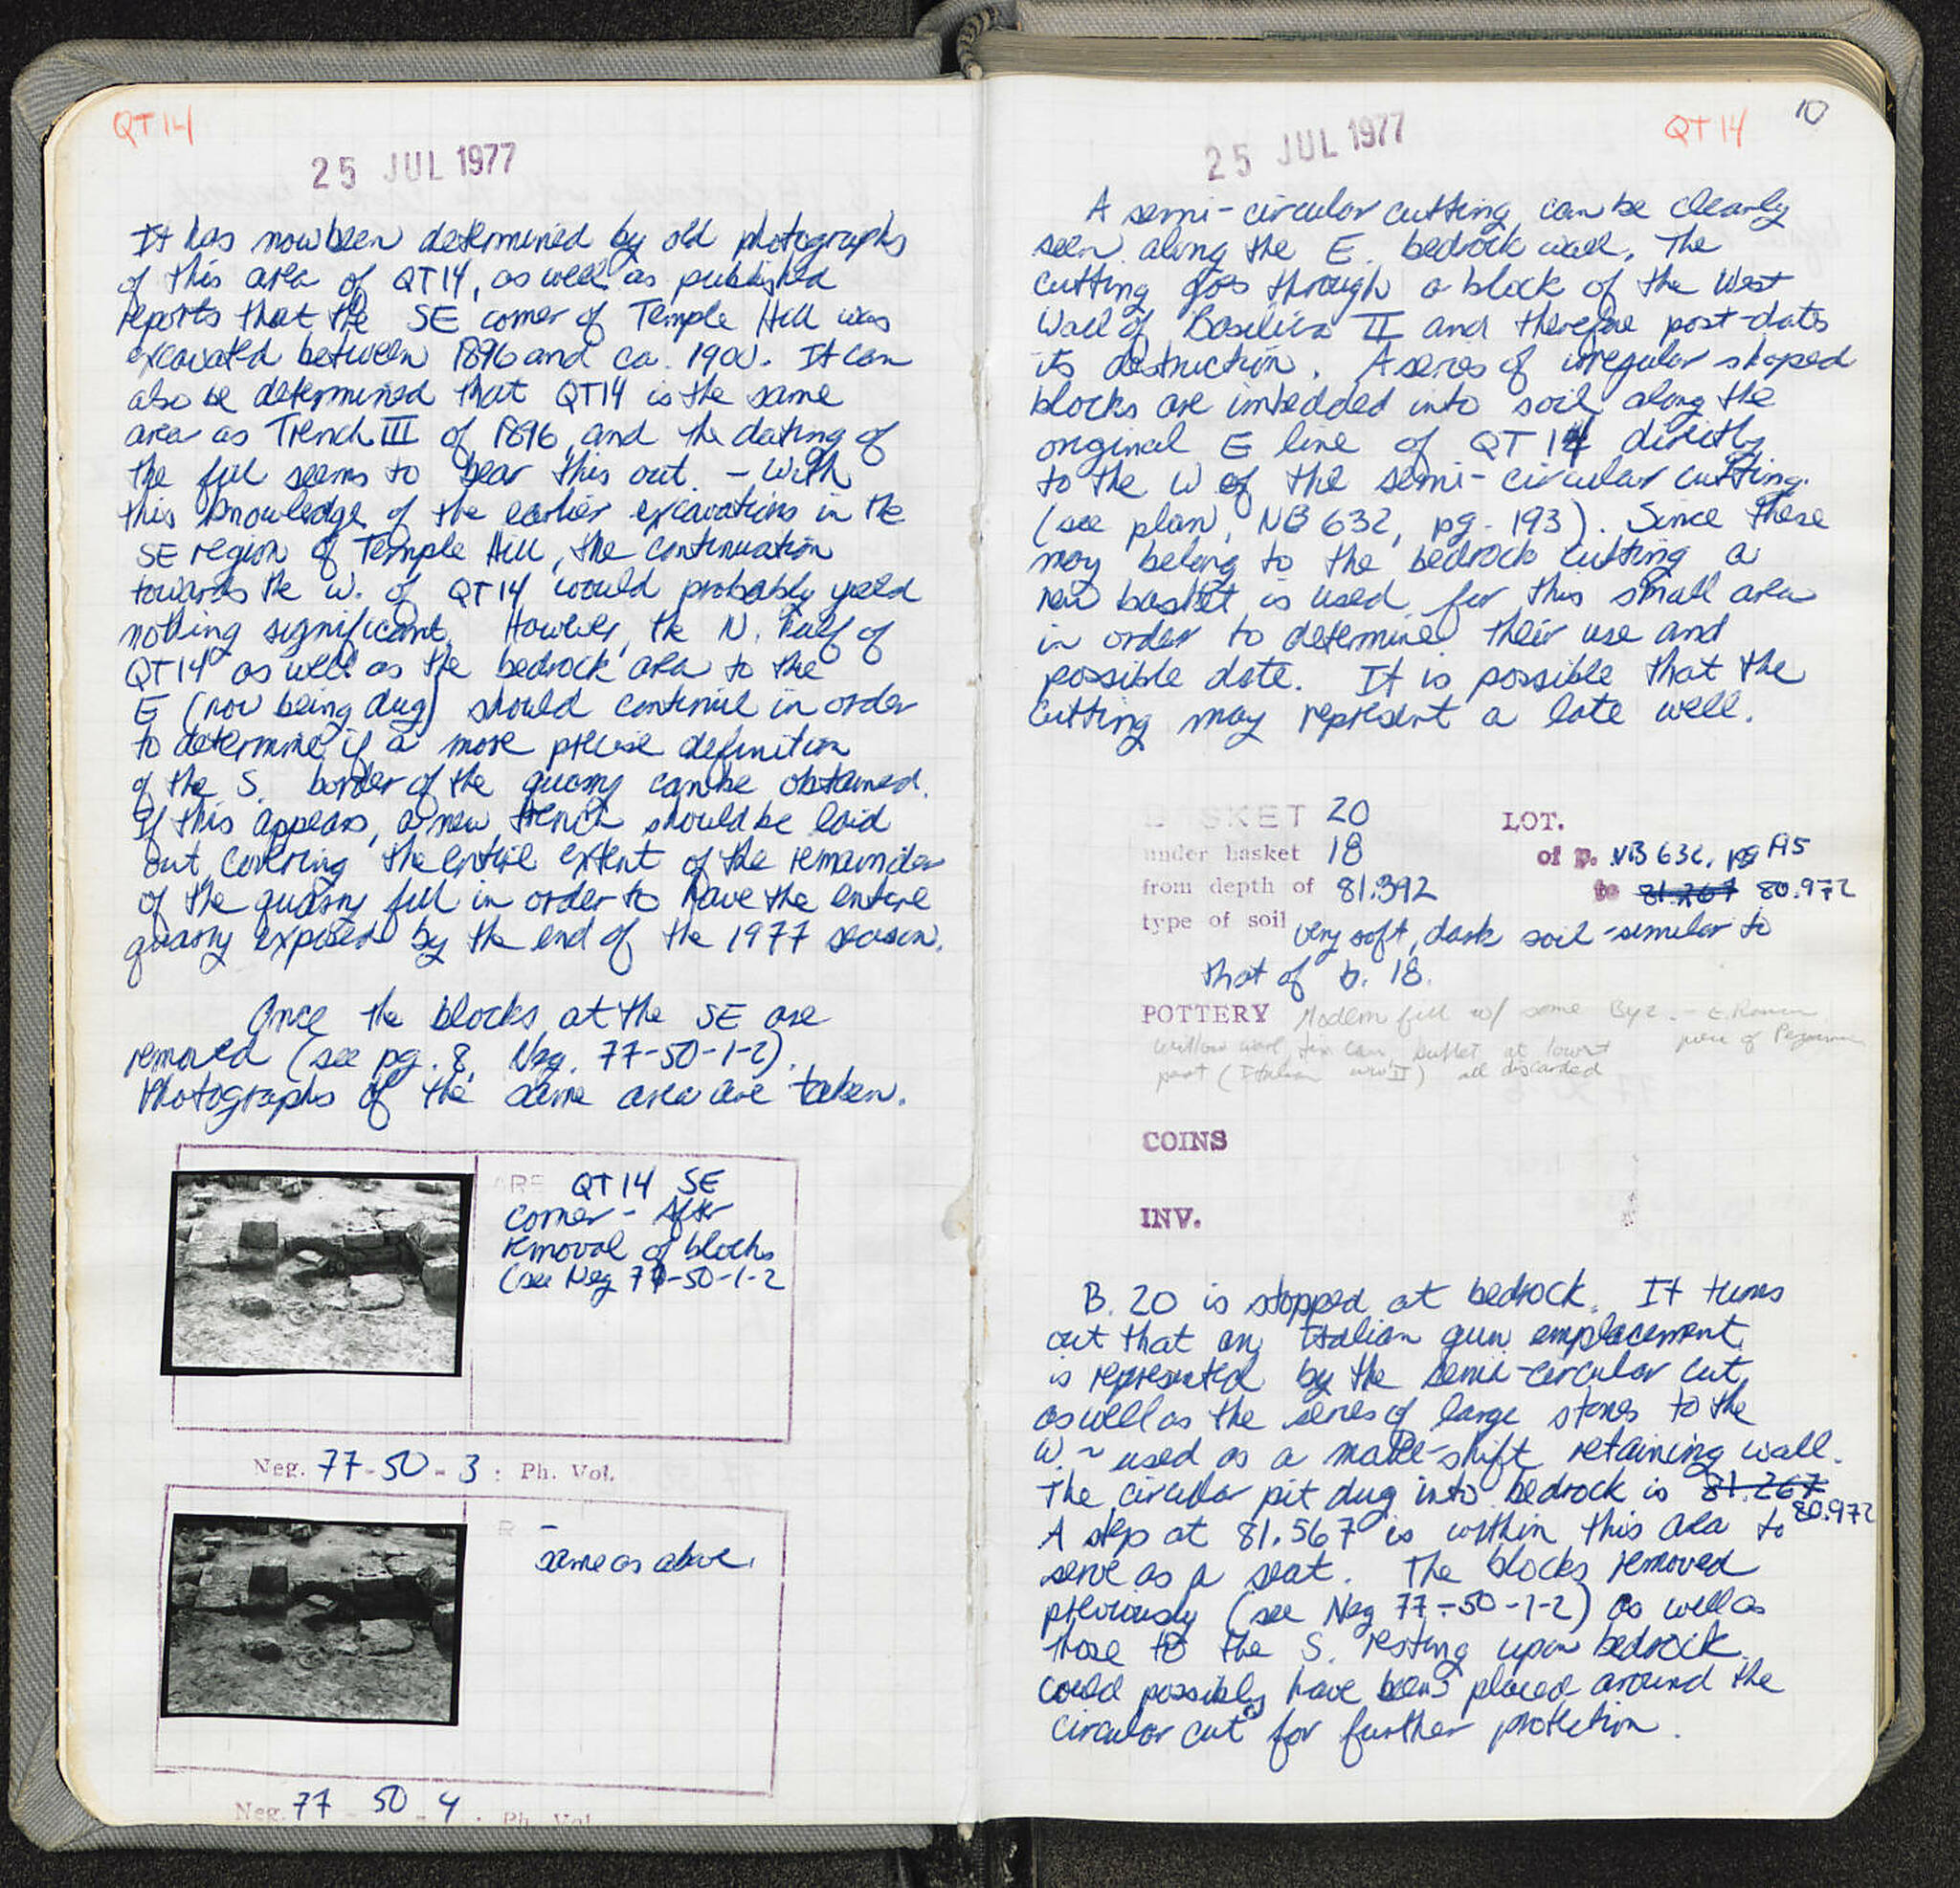 QT 14
25 JUL 1977
It has now been determined by old photographs
of this area of QT14, as well as published
reports that the SE corner of Temple Hill was
excavated between 1896 and ca. 1900. It can
also be determined that QT14 is the same
area as Trench III of 1896, and the dating of
the fill seems to bear this out. - With
this knowledge of the earlier excavations in the
SE region of Temple Hill, the continuation
towards the W. of QT14 would probably yield
nothing significant. However, the N. half of
QT14 as well as the bedrock area to the
E (now being dug) should continue in order
to determine if a more precise definition
of the S. border of the quarry can be obtained.
If this appears, a new trench should be laid
out covering the entire extent of the remainder
of the quarry fill in order to have the entire
quarry exposed by the end of the 1977 season.
Once the blocks at the SE are
removed (see pg. 8, Neg. 77-50-1-2).
Photographs of the same area are taken.
ARE QT 14 SE
corner - After
removal of blocks
(see Neg 77-50-1-2
Neg. 77-50-3 : Ph. Vol.
R -
same as above.
Neg. 77 50-4 : Ph. Vol
10
25 JUL 1977 QT 14
A semi-circular cutting can be clearly
seen along the E. bedrock wall. The
cutting goes through a block of the West
Wall of Basilica II and therefore post-dates
its destruction. A series of irregular shaped
blocks are imbedded into soil along the
original E line of QT 14 directly
to the W of the semi-circular cutting.
(see plan, NB 632, pg. 193). Since these
may belong to the bedrock cutting a
new basket is used for this small area
in order to determine their use and
possible date. It is possible that the
cutting may represent a late well.
BASKET 20 LOT.
under basket 18 of p. NB 632, pg 195
from depth of 81.392 to 81.267 80.972
type of soil very soft, dark soil - similar to
that of b. 18.
POTTERY Modern fill w/ some Byz. - E. Roman
willow ware, tin can, bullet at lowest piece of
part (Italian WW II) all discarded
COINS
INV.
B. 20 is stopped at bedrock. It turns
out that an Italian gun emplacement
is represented by the semi-circular cut,
as well as the series of large stones to the
W. ~ used as a make-shift retaining wall.
The circular pit dug into bedrock is 81.267
80.972
A step at 81.567 is within this area to
serve as a seat. The blocks removed
previously (see Neg 77-50-1-2) as well as
those to the S. resting upon bedrock
could possibly have been placed around the
circular cut for further protection.